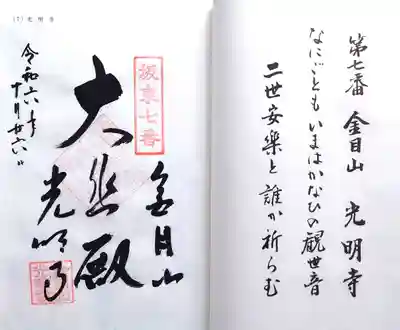 第七番 金目山 光明寺
なにごとも いまはかなひの観世音
二世安楽と誰か祈らむ
(7) 光明寺
坂東七番
金目山
大悲殿
光明寺
令和六年
十月廿六日